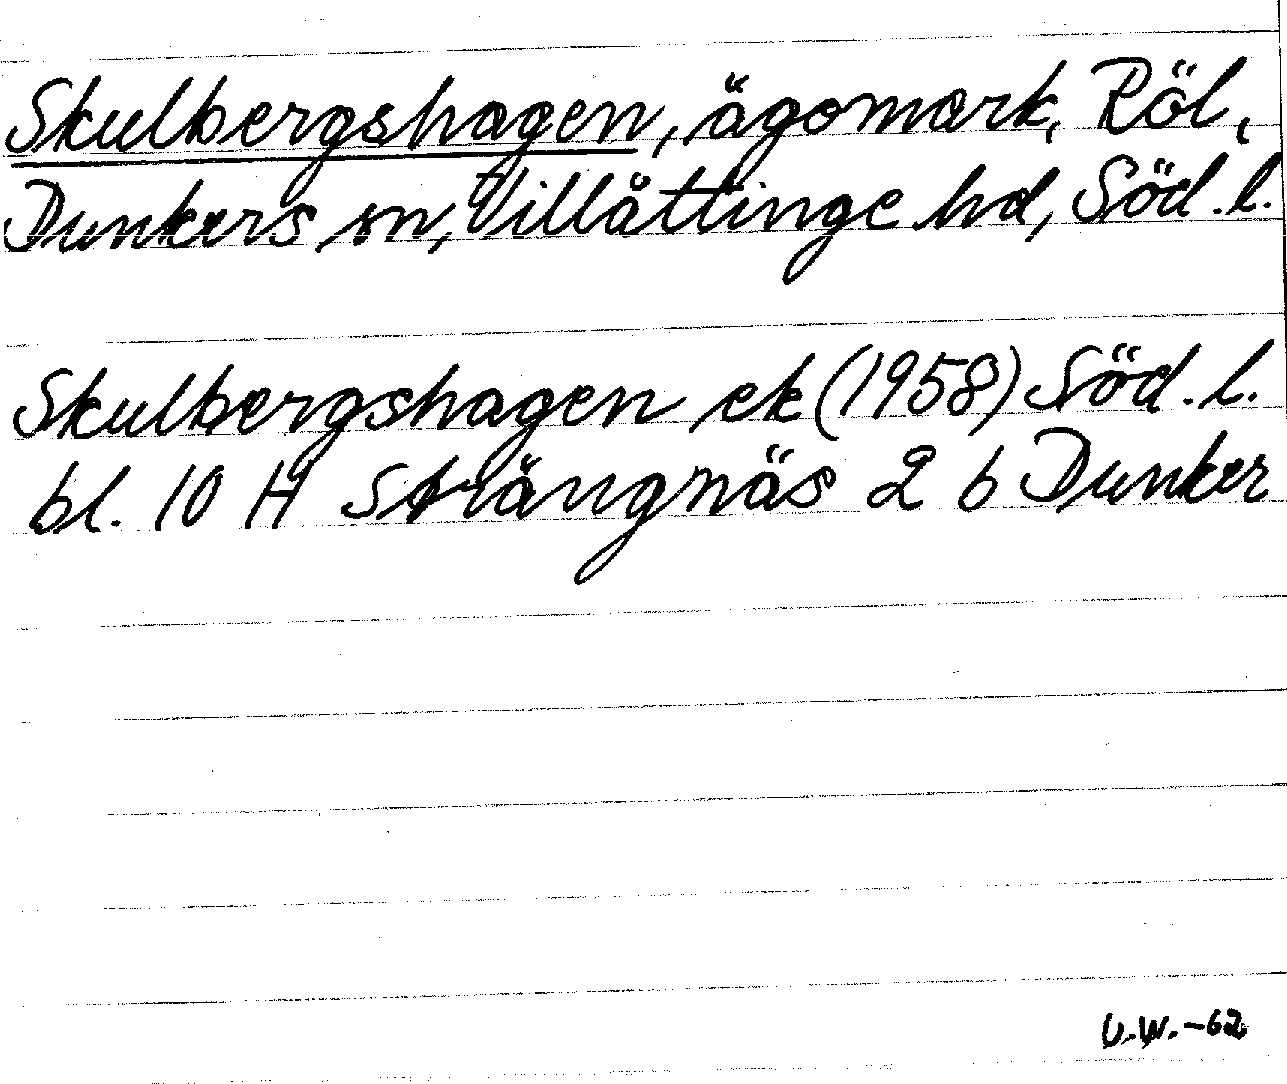 Skulbergshagen, ägomark, Röl,
Dunkers sn, Villåttinge hd, Söd. l.
Skulbergshagen ek (1958) Söd. l.
bl. 10 H Strängnäs 2 b Dunker
U.W.-62